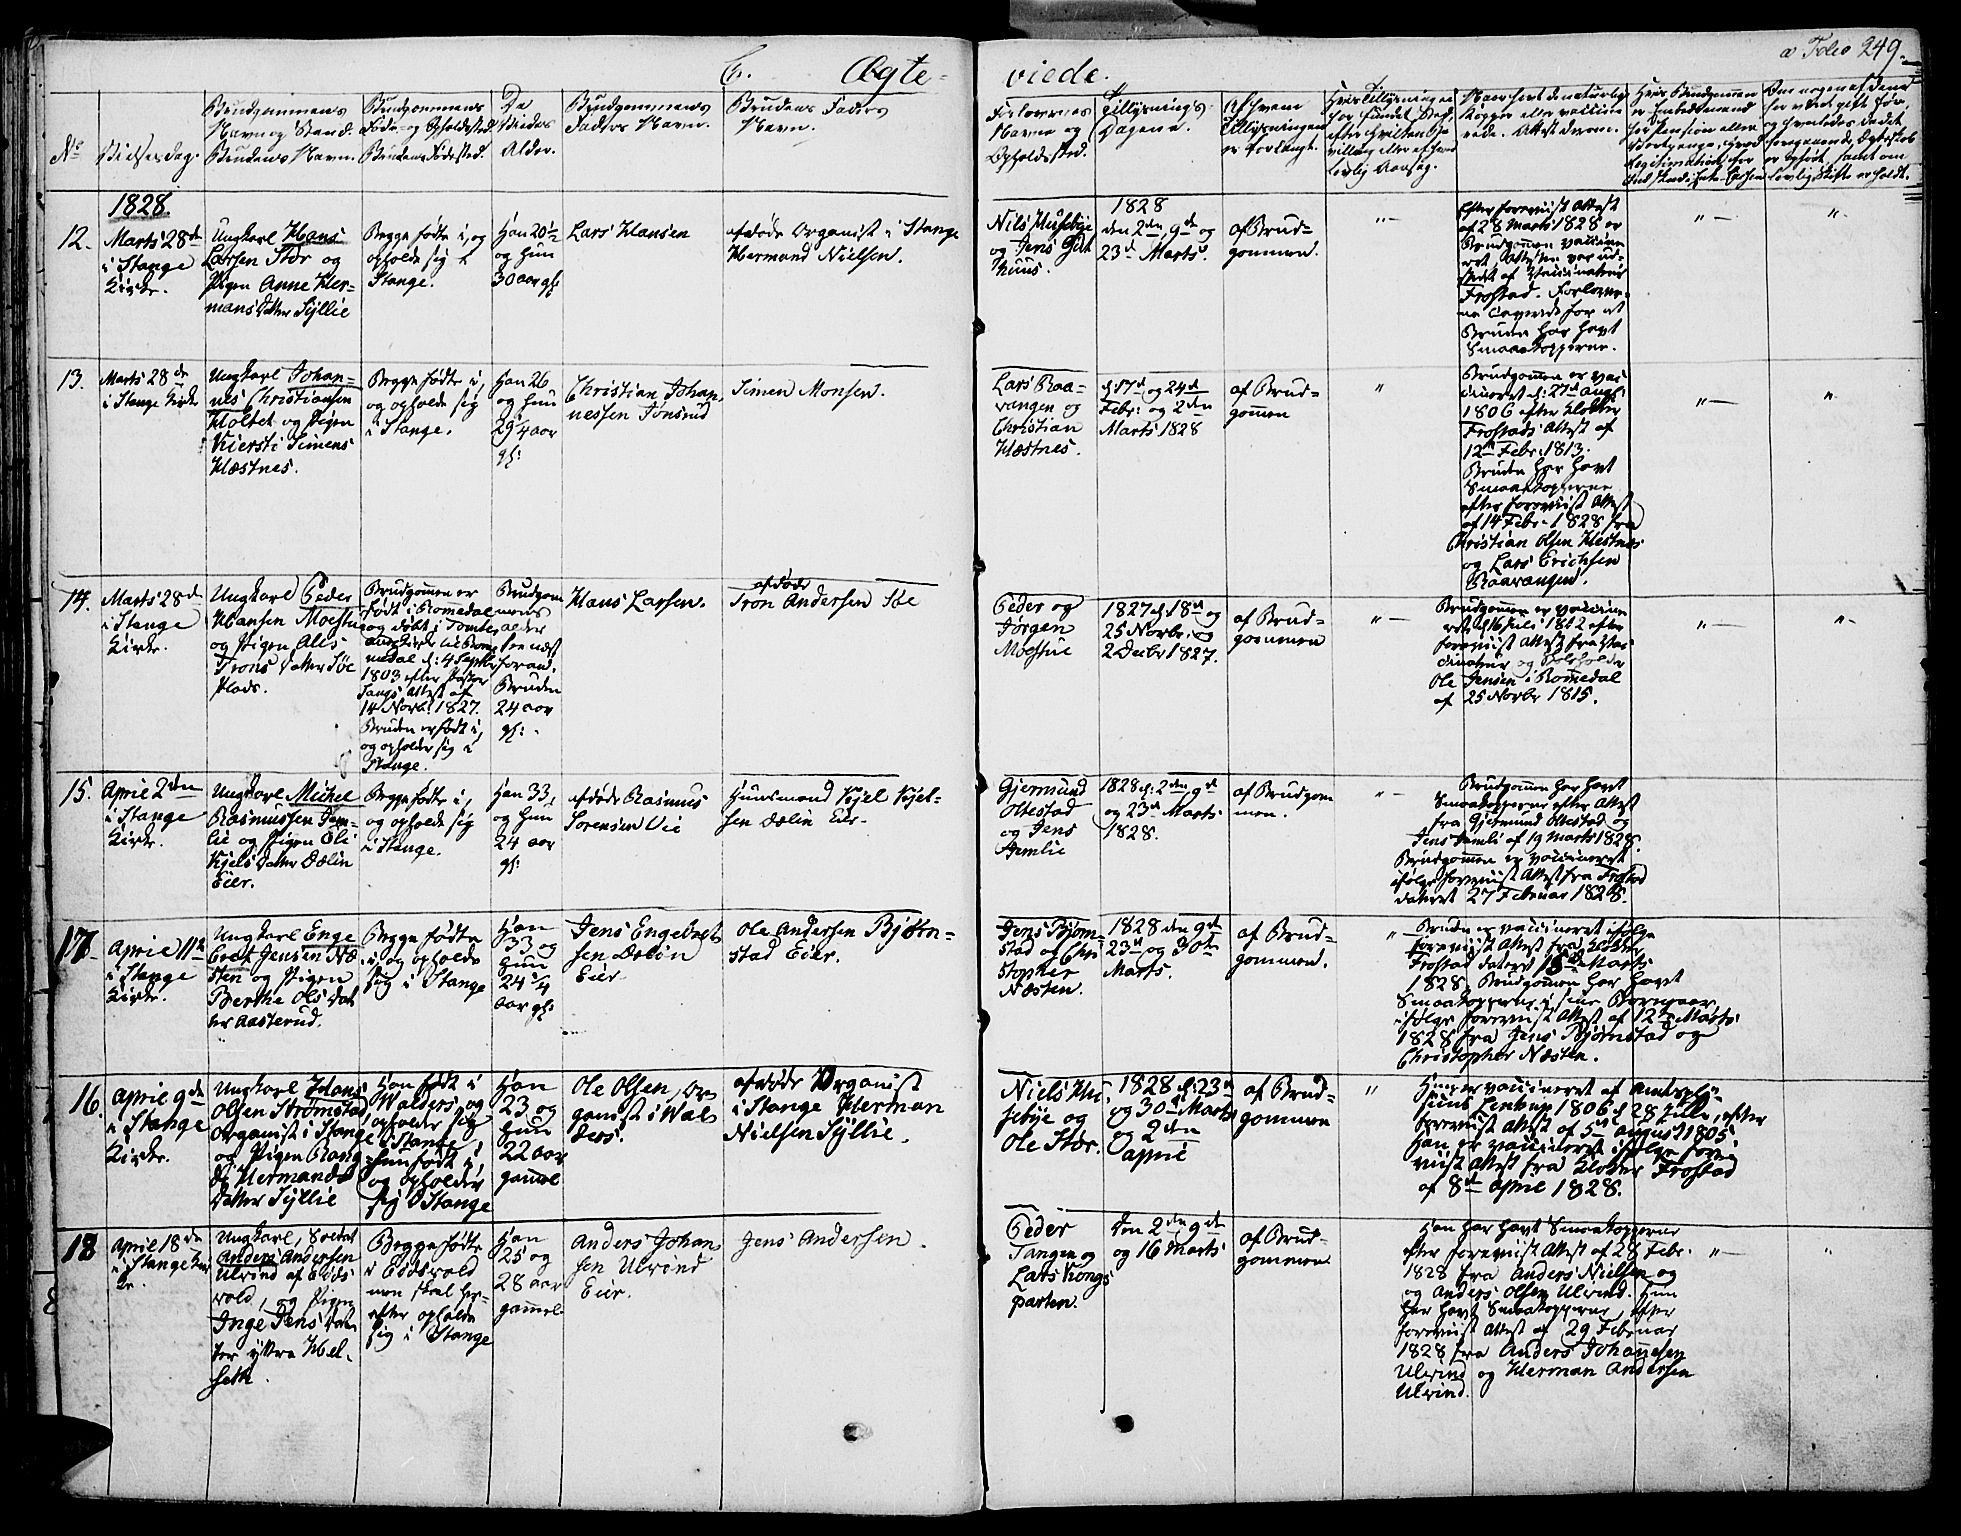 C. Ægte-
viede.
a Folio 249.
No
Vielsesdag.
Brudgommens
Navn og Stand.
Brudens Navn.
Brudgommens
Føde- og Opholdssted.
Brudens Fødested.
De
Viedes
Alder.
Brudgommens
Faders Navn.
Brudens Faders
Navn.
Forlovernes
Navne og
Opholdssted.
Tillysnings-
Dagene.
Af hvem
Tillysningen
er forlangt.
1828
12.
Marts 28de
i Stange
Kirke.
Ungkarl Hans
Larsen Stor og
Pigen Anne Her-
mans Datter Syllie
Begge fødte i, og
opholde sig i
Stange.
Han 20½
og hun
30 aar gl:
Lars Hansen
afdøde Organist i Stange
Hermand Nielsen.
Nils Huseby
og Jens
1828
den 2den, 9de og
23de Marts.
af Brud=
gommen.
" —
Efter foreviist Attest
af 28 Marts 1828 er
Brudgommen vaccine-
ret, Attesten var ud-
stedt af
Frostad. Forlover-
ne caverede for at
Bruden har havt
Smaakopperne.
" —
" -
13.
Marts 28de
i Stange Kirke
Ungkarl Johan-
nes Christiansen
Holtet og Pigen
Kiersti Simens
Hæstnes.
Begge fødte i,
og opholde sig
i Stange.
Han 26
og hun
29¼ aar
gl:
Christian Johan-
nessen Jønsrud
Simen Monsen.
Lars Raa-
vangen og
Christian
Hæstnes.
d. 17de og 24de
Febr: og 2den
Marts 1828
af Brud=
gommen
"
Brudgommen er vac-
cineret d: 27de Aug:
1806 efter Klokker
Frostads Attest af
12te Febr: 1813.
Bruden har havt
Smaakopperne
efter foreviist Attest
af 14 Febr. 1828 fra
Christian Olsen Hestnes
og Lars Erichsen
Raavangen.
" —
" -
14.
Marts 28de
i Stange
Kirke.
Ungkarl Peder
Hansen Moestue
og Pigen Alis
Trons Datter Søe
Plads.
Brudgommen er
født i Romedal
og døbt i Tomter
Kirke i Rom-
medal d: 4 Septbr
1803 efter Pastor
Langs Attest af
14 Novb: 1827.
Bruden er født i,
og opholder sig i
Stange.
Brudgom-
mens
alder
see næst
foran.
Bruden
24 aar
gl: -
Hans Larsen.
afdøde
Tron Andersen Søe
Peder og
Jørgen
Moestue
1827 d: 18de og
25 Novbr: og
2 Decbr 1827.
af Brud=
gommen
" —
Brudgommen er vaccine-
ret d. 16 Juli 1812 efter
foreviist Attest fra Vac-
cinateur og
Ole Jensen i Romedal
af 25 Novbr 1815.
" —
" -
15.
April 2den
i Stange
Kirke.
Ungkarl Michel
Rasmussen Jem-
lie og Pigen Eli
Kjels Datter Dælin
Eier.
Begge fødte i,
og opholde sig
i Stange.
Han 33,
og hun
24 aar
gl:
afdøde Rasmus
Sørensen Vie
Huusmand Kjel Kjel-
sen Dælin Eier.
Gjermund
Oltestad
og Jens
Jemlie
1828 d: 2den, 9de
og 23de Marts
1828.
af Brudgom
men.
" —
Brudgommen har havt
Smaakopperne efter Attest
fra Gjermund Oltestad og
Jens Jemli af 19 Marts 1828.
Brudgommen er vaccineret
ifølge foreviist Attest fra Frostad
dateret 27 Februar 1828.
17.
April 11te
i Stange
Kirke.
Ungkarl Enge
bret Jensen Næ-
sten og Pigen
Berthe Ols Dat
ter Aasterud.
Begge fødte
i, og opholde
sig i Stange
Han
33 og
hun
24 ¾
aar gl:
Jens Engebret
sen Dælin
Eier.
Ole Andersen Bjørn=
stad Eier.
Jens Bjørn-
stad og Chri
stopher
Næsten.
1828 den 9de
23de og 30te
Marts.
af Brud=
gommen.
" —
Bruden er vaccineret ifølge
foreviist Attest fra Klokker
Frostad dateret 15de Marts
1828. Brudgommen har havt
Smaakopperne i sine Børneaar
ifølge foreviist Attest af 12te Marts
1828 fra Jens Bjørnstad og
Christopher Næsten.
16.
April 9de
i Stange
Kirke.
Ungkarl Hans
Olsen Strømstad
Organist i Stange
og Pigen Rang
di Hermands
datter Syllie
Han født i
Walders, og
opholder sig
i Stange,
hun født i,
og opholder
sig i Stange
Han
23 og
hun
22 aar
gammel
Ole Olsen, Or-
ganist i Wal
ders.
afdøde Organist
i Stange Herman
Nielsen Syllie.
Niels Hu-
sebye og
Ole Stor.
1828 d: 23de
og 30te Marts
og 2den
april
af Brud=
gommen
"
Hun er vaccineret af Amtschi-
rurg Lentrup 1806 d 28 Julii, efter
foreviist Attest af 5te August 1805.
Han er vaccineret ifølge fore-
viist Attest fra Klokker Frostad
af 8de April 1828.
18
April 18de
i Stange Kir
ke.
Ungkarl, Soldat
Anders Andersen
Ulvind af Eids
vold, og Pigen
Inge Jens Dat
ter ystre Hel-
seth.
Begge fødte
i Eidsvold
men skal her-
efter opholde
sig i Stange
Han
25 og
28 aar
gammel
Anders Johan
sen Ulvind
Eier.
Jens Andersen.
Peder
Tangen og
Lars Kongs
parten.
Den 2den, 9de
og 16 Marts
af Brud=
gommen
Han har havt Smaakopperne
efter foreviist Attest af 28 Febr.
1828 fra Anders Nielsen og
og Anders Olsen Ulvind. Hun
har havt Smaakopperne, efter
foreviist Attest af 29 Februar
1828 fra Anders Johannesen
Ulvind og Herman Andersen
Ulvind.
" —
"